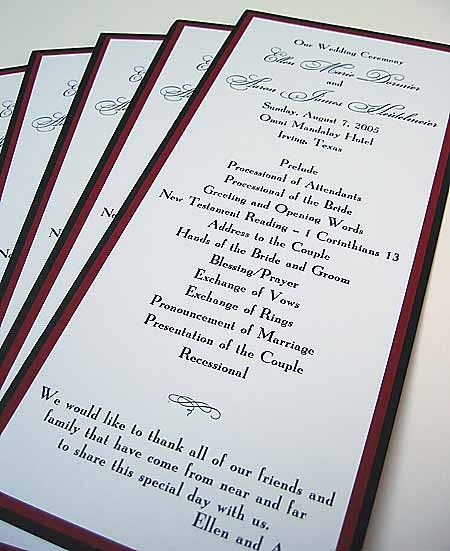 Our Wedding Ceremony
Ellen Marie Dormier
and
Aaron James Heidelmeier
Sunday, August 7, 2005
Omni Mandalay Hotel
Irving, Texas
Prelude
Processional of Attendants
Processional of the Bride
Greeting and Opening Words
New Testament Reading - 1 Corinthians 13
Address to the Couple
Hands of the Bride and Groom
Blessing/Prayer
Exchange of Vows
Exchange of Rings
Pronouncement of Marriage
Presentation of the Couple
Recessional
We would like to thank all of our friends and
family that have come from near and far
to share this special day with us.
Ellen and A